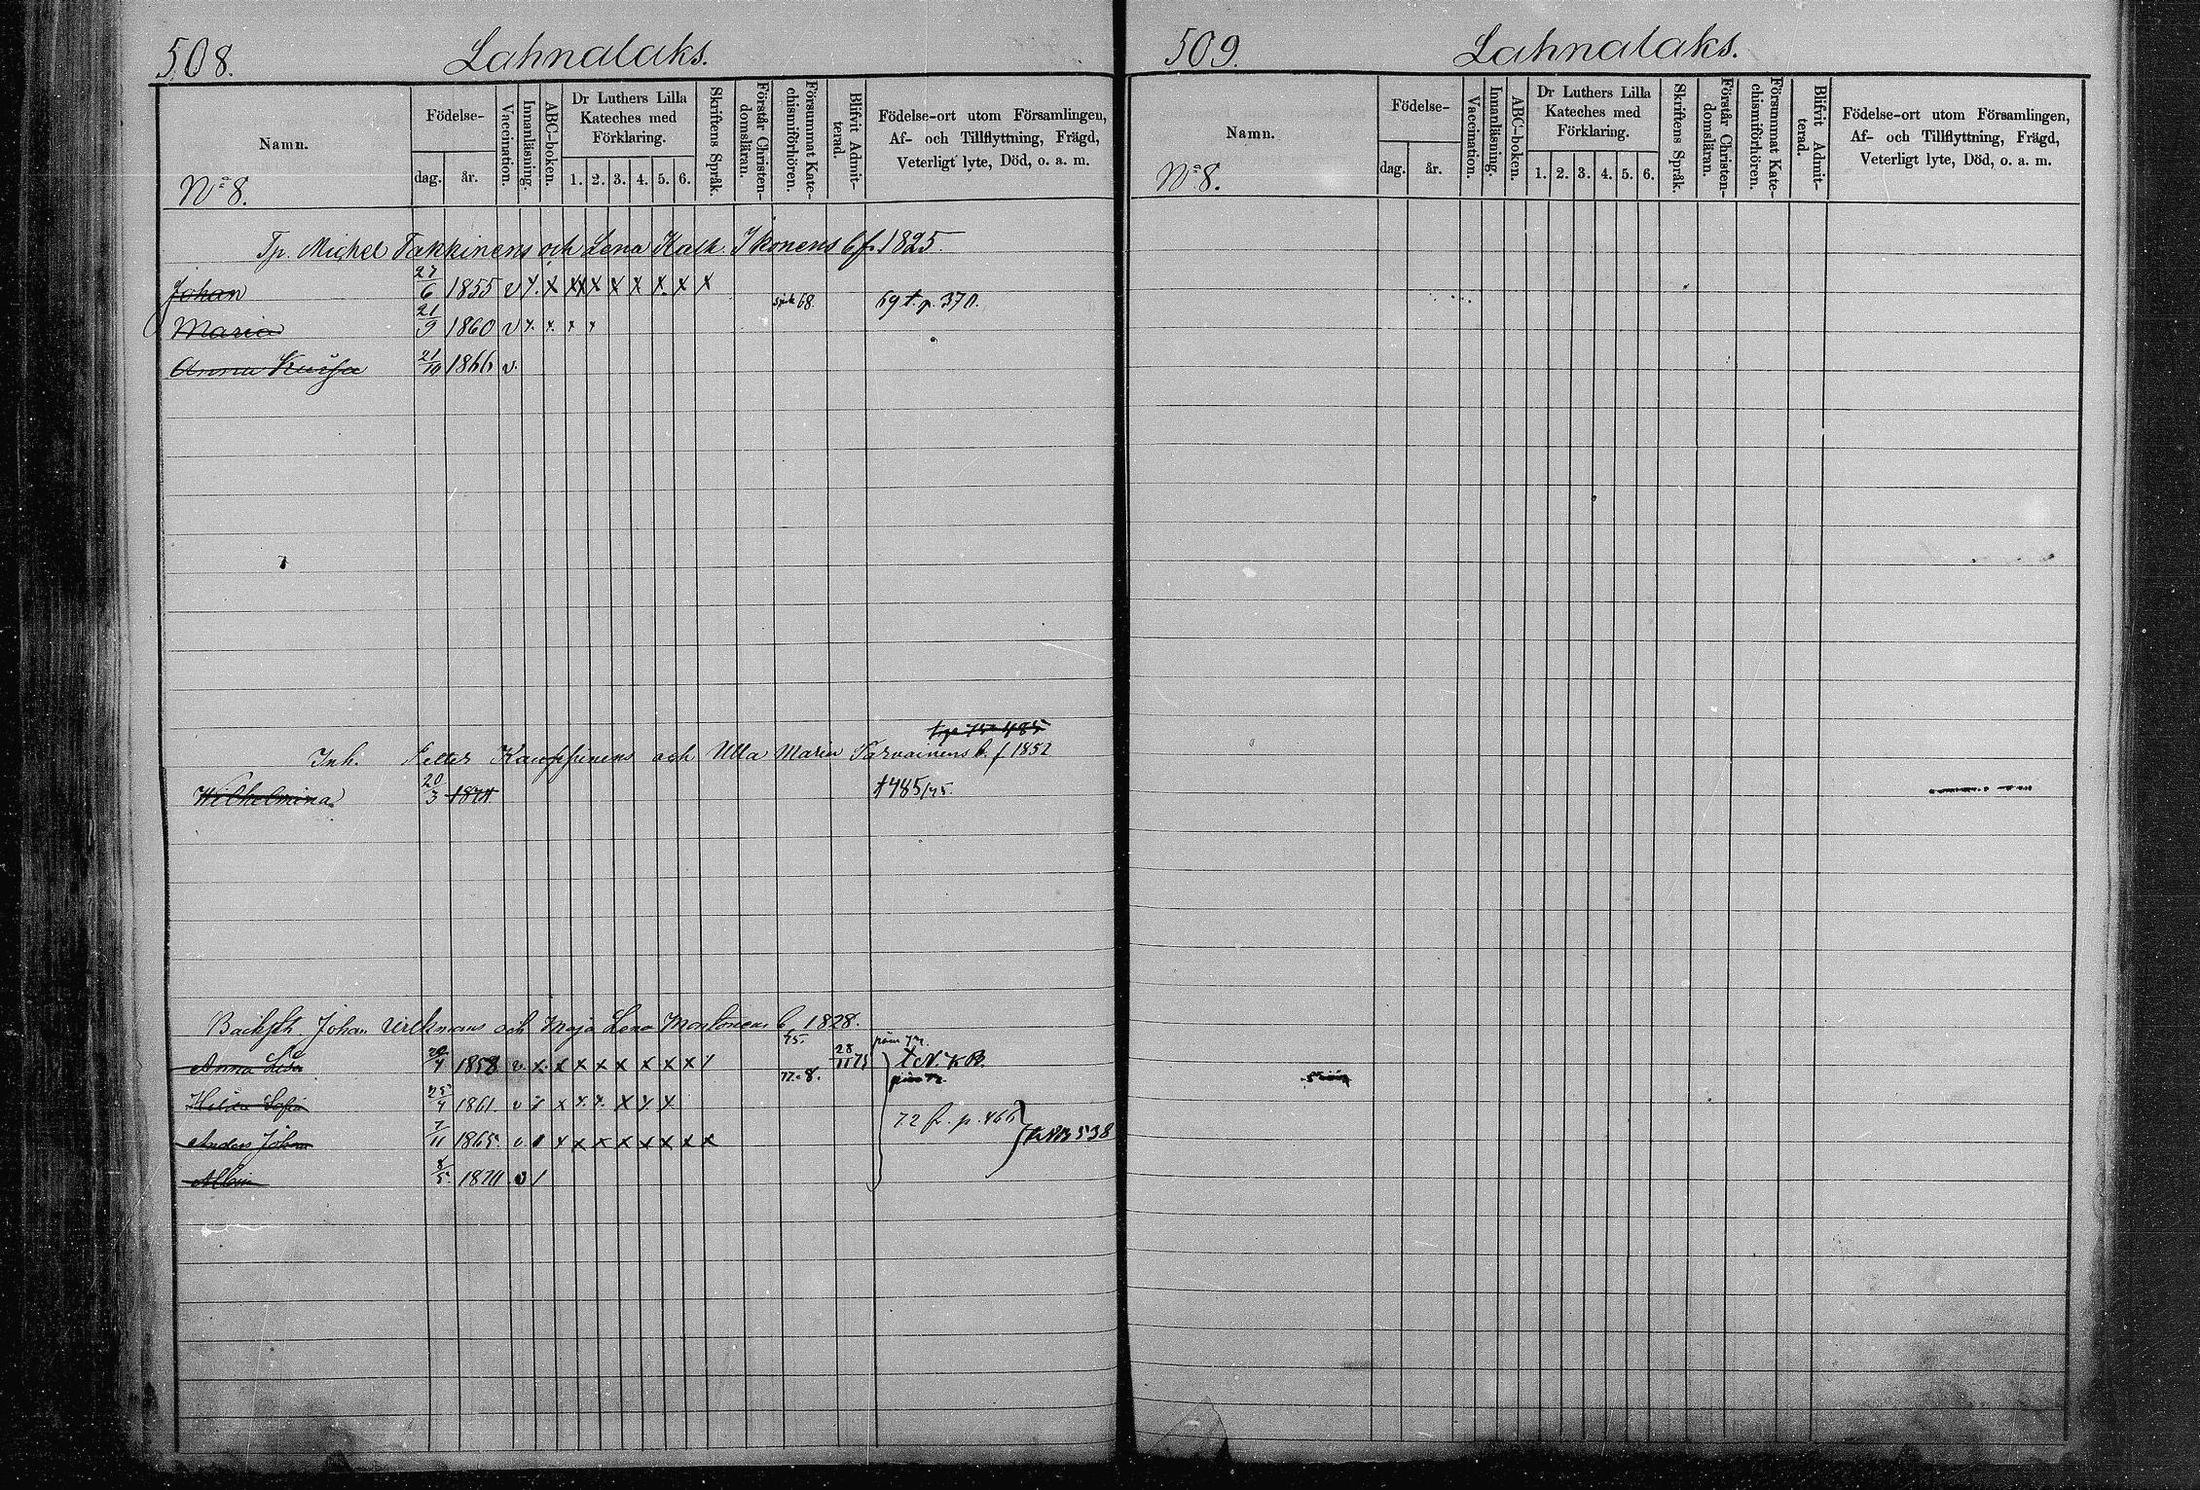 508.
Lahnalaks.
Namn.
Födelse-
dag.
år.
Vaccination.
Innanläsning.
ABC-boken.
Dr Luthers Lilla
Kateches med
Förklaring.
1. 2. 3. 4. 5. 6.
Skriftens Språk.
Förstår Christen-
domsläran.
Försummat Kate-
chismiförhören.
Blifvit Admit-
terad.
Födelse-ort utom Församlingen,
Af- och Tillflyttning, Frägd,
Veterligt lyte, Död, o. a. m.
No 8.
Tp. Michel Takkinens och Lena Kath. Ikonens b f. 1825.
Johan 27/6 1855 v x x x x x x x x x
68. 69 fr. p. 370.
Maria 21/9 1860 v x x x x
Anna 21/10 1866 v.
Inh. Petter Kauppinens och Ulla Maria b. f 1852
Wilhelmina 20/3 1871 485/75
Johan och Maja Lena b. 1828.
75.
Anna Lisa 1858 v. x x x x x x x x 28/11 75 N. K B.
77-8.
Sofia 25/4 1861. v x x x x x x x
72 fr. p. 466
Anders Johan 7/11 1865. v x x x x x x x x 538
Albin 8/5 1871 v /
509.
Lahnalaks.
Namn.
Födelse-
dag.
år.
Vaccination.
Innanläsning.
ABC-boken.
Dr Luthers Lilla
Kateches med
Förklaring.
1. 2. 3. 4. 5. 6.
Skriftens Språk.
Förstår Christen-
domsläran.
Försummat Kate-
chismiförhören.
Blifvit Admit-
terad.
Födelse-ort utom Församlingen,
Af- och Tillflyttning, Frägd,
Veterligt lyte, Död, o. a. m.
No 8.